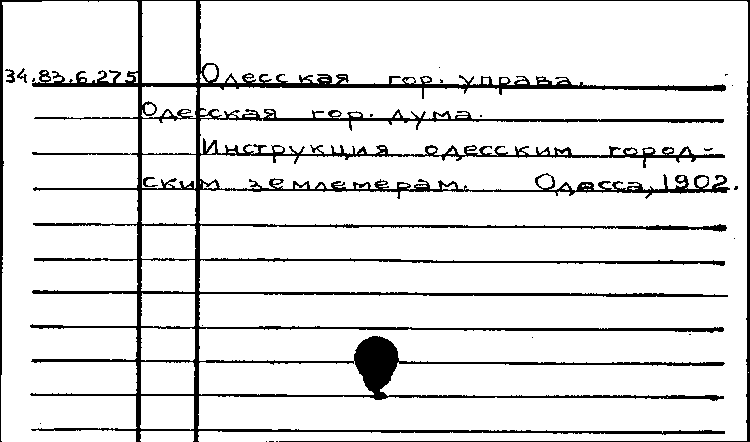 34.83.6.275 Одесская гор. управа.
Одесская гор. дума.
Инструкция одесским город-
ским землемерам. Одесса, 1902.